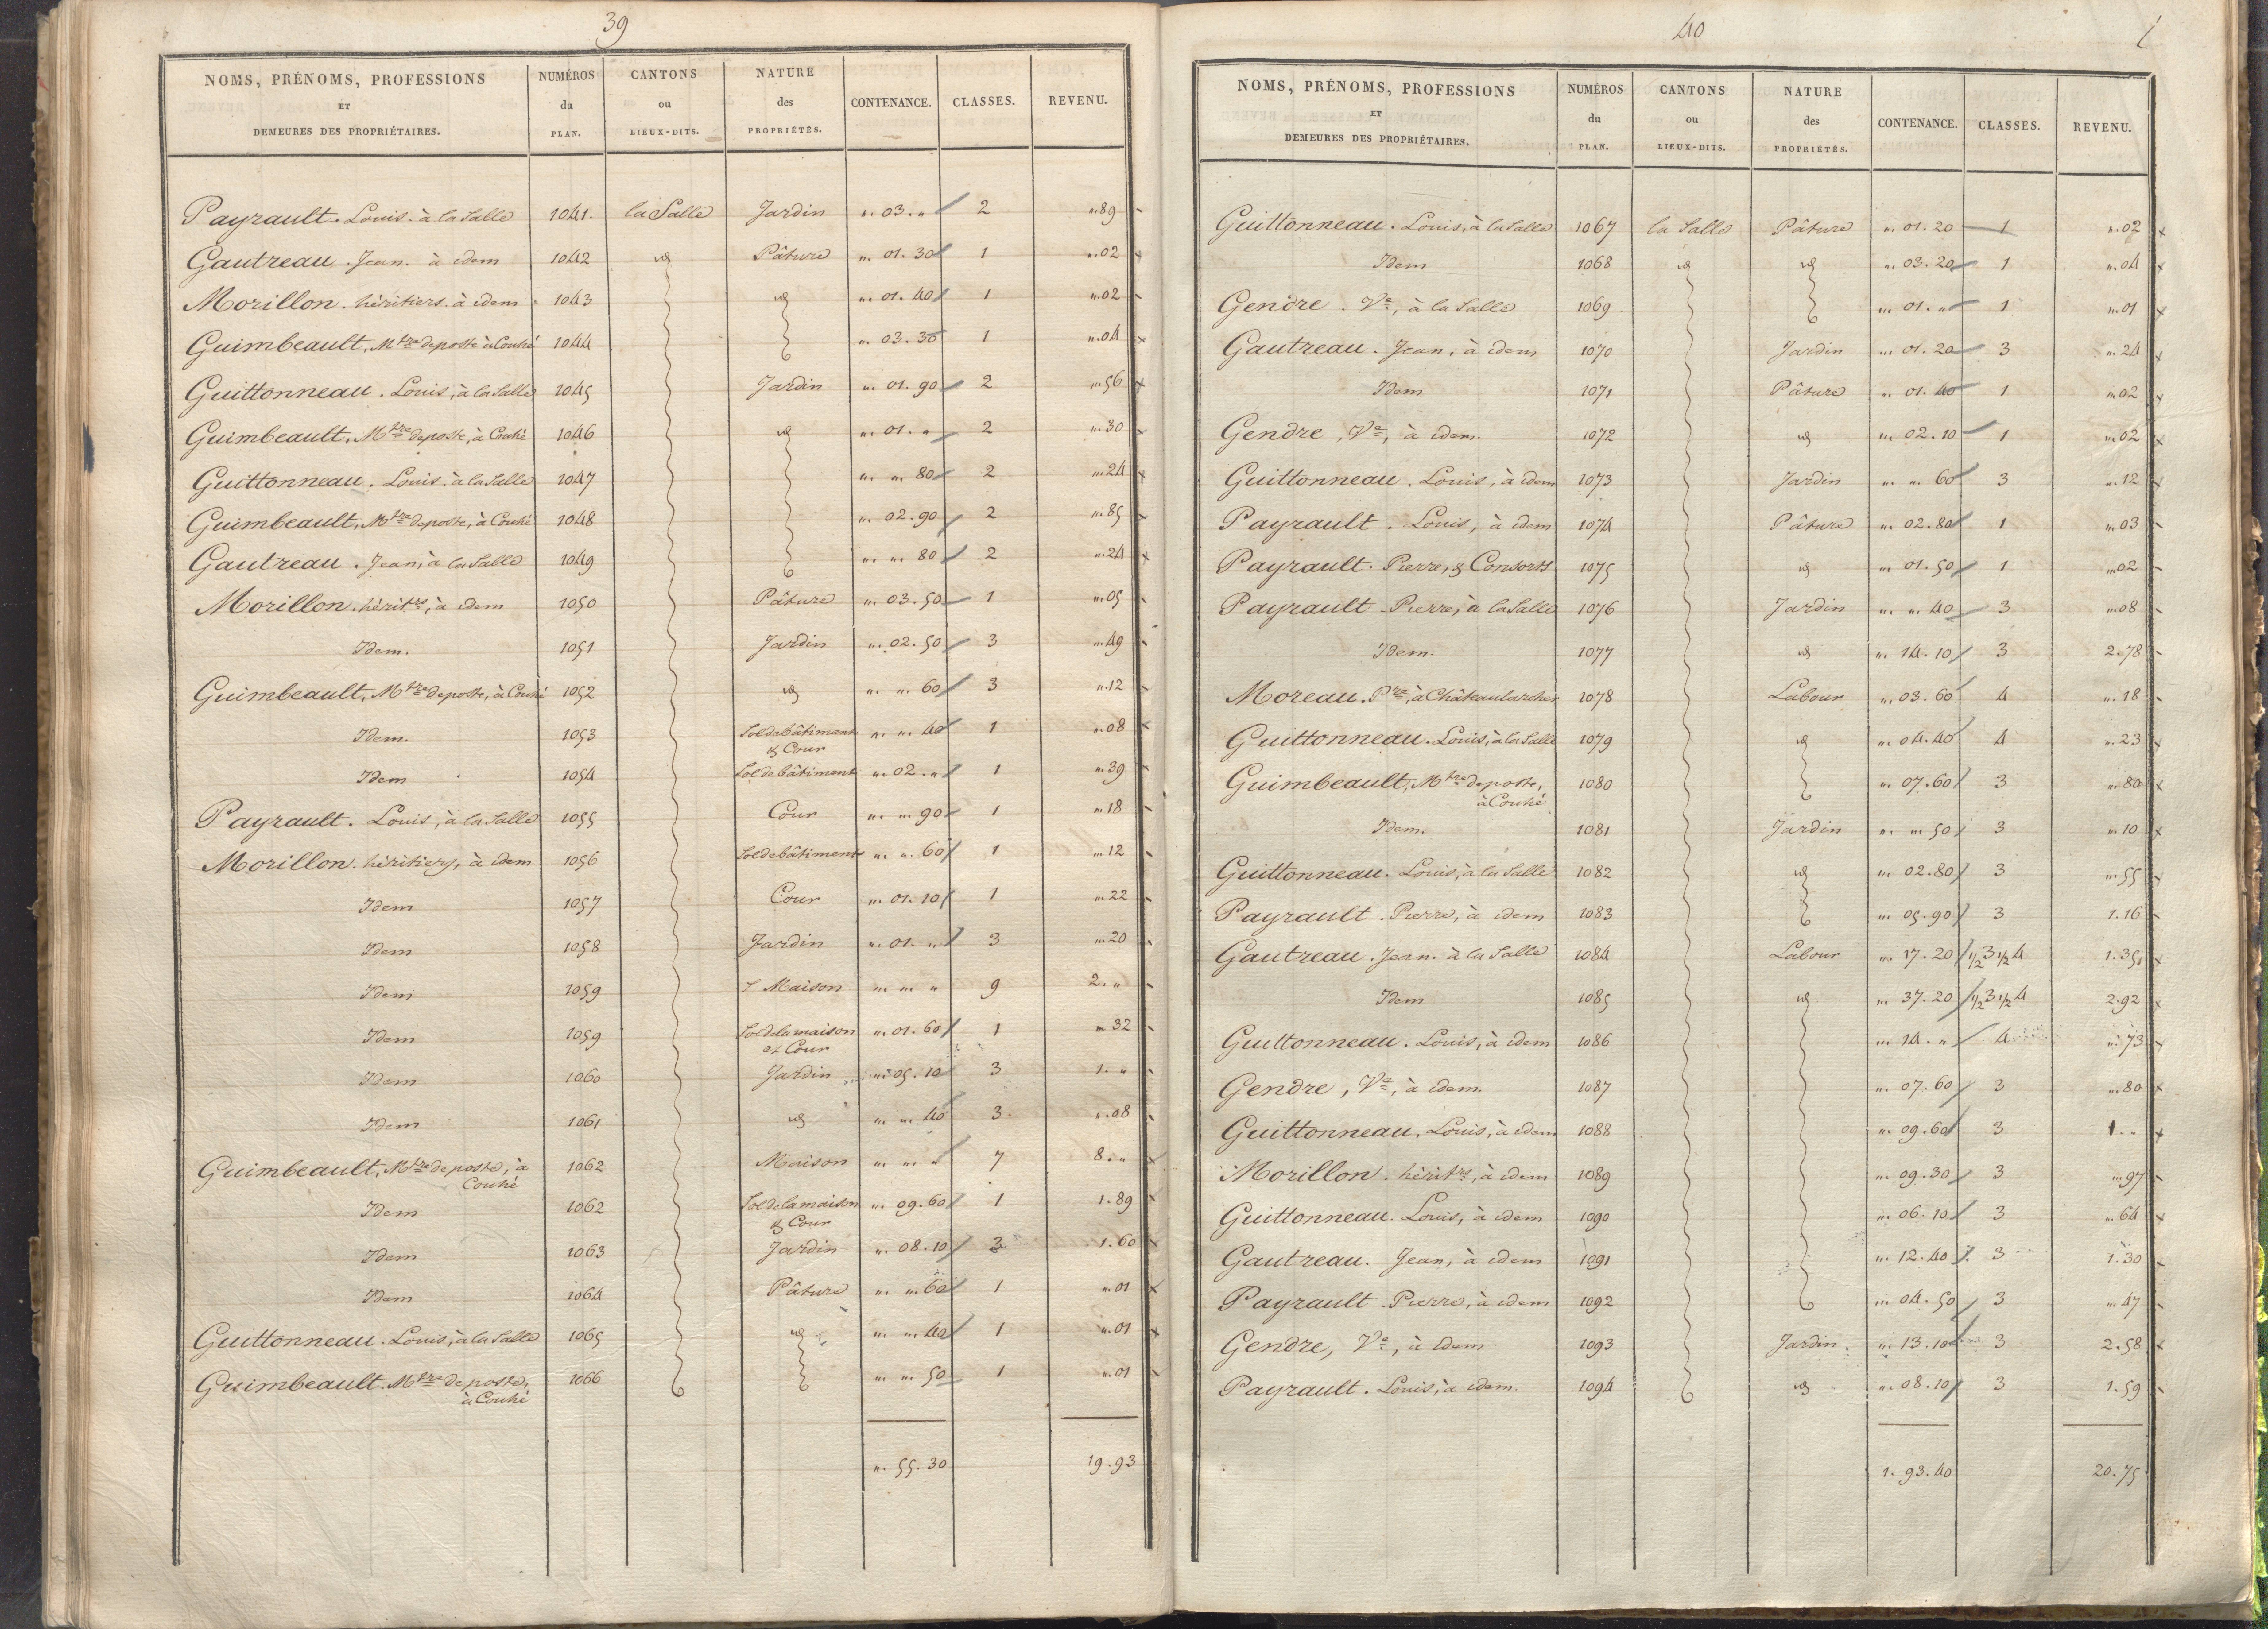 39
NOMS, PRÉNOMS, PROFESSIONS ET DEMEURES DES PROPRIÉTAIRES. NUMÉROS du PLAN. CANTONS ou LIEUX-DITS. NATURE des PROPRIÉTÉS. CONTENANCE. CLASSES. REVENU.
Payrault. Louis. à la Salle 1041. la Salle Jardin „. 03. „ 2 „. 89
Gautreau. Jean. à idem 1042 id Pâture „. 01. 30 1 „. 02
Morillon. héritiers. à idem 1043 id „. 01. 40 1 „. 02
Guimbeault, Mtre de poste à Couhé 1044 „. 03. 30 1 „. 04
Guittonneau. Louis, à la Salle 1045 Jardin „. 01. 90 2 „. 56
Guimbeault, Mtre de poste, à Couhé 1046 id „. 01. „ 2 „. 30
Guittonneau. Louis. à la Salle 1047 „. „. 80 2 „. 24
Guimbeault, Mtre de poste, à Couhé 1048 „. 02. 90 2 „. 85
Gautreau. Jean, à la Salle 1049 „. „. 80 2 „. 24
Morillon. héritrs, à idem 1050 Pâture „. 03. 50 1 „. 05
Idem. 1051 Jardin „. 02. 50 3 „. 49
Guimbeault, Mtre de poste, à Couhé 1052 id „. „. 60 3 „. 12
Idem. 1053 Sol de bâtiment „. „. 40 1 „. 08
& Cour
Idem 1054 Sol de bâtiment „. 02. „ 1 „. 39
Payrault. Louis, à la Salle 1055 Cour „. „. 90 1 „. 18
Morillon. héritiers, à idem 1056 Sol de bâtiment „. „. 60 1 „. 12
Idem 1057 Cour „. 01. 10 1 „. 22
Idem 1058 Jardin „. 01. „ 3 „. 20
Idem 1059 Maison „. „. „ 9 2. „
Idem 1059 Sol de la maison „. 01. 60 1 „. 32
et Cour
Idem 1060 Jardin „. 05. 10 3 1. „
Idem 1061 id „. „. 40 3. „. 08
Guimbeault, Mtre de poste, à 1062 Maison „. „. „ 7 8. „
Couhé
Idem 1062 Sol de la maison „. 09. 60 1 1. 89
& Cour
Idem 1063 Jardin „. 08. 10 3 1. 60
Idem 1064 Pâture „. „. 60 1 „. 01
Guittonneau. Louis, à la Salle 1065 id „. „. 40 1 „. 01
Guimbeault. Mtre de poste, 1066 „. „. 50 1 „. 01
à Couhé
„. 55. 30 19. 93
40
NOMS, PRÉNOMS, PROFESSIONS ET DEMEURES DES PROPRIÉTAIRES. NUMÉROS du PLAN. CANTONS ou LIEUX-DITS. NATURE des PROPRIÉTÉS. CONTENANCE. CLASSES. REVENU.
Guittonneau. Louis, à la Salle 1067 la Salle Pâture „. 01. 20 1 „. 02
Idem 1068 id id „. 03. 20 1 „. 04
Gendre. Ve, à la Salle 1069 „. 01. „ 1 „. 01
Gautreau. Jean, à idem 1070 Jardin „. 01. 20 3 „. 24
Idem 1071 Pâture „. 01. 40 1 „. 02
Gendre, Ve, à idem. 1072 id „. 02. 10 1 „. 02
Guittonneau. Louis, à idem 1073 Jardin „. „. 60 3 „. 12
Payrault. Louis, à idem 1074 Pâture „. 02. 80 1 „. 03
Payrault. Pierre, & Consorts 1075 id „. 01. 50 1 „. 02
Payrault. Pierre, à la Salle 1076 Jardin „. „. 40 3 „. 08
Idem. 1077 id „. 14. 10 3 2. 78
Moreau. Pre, à Châteaularcher 1078 Labour „. 03. 60 4 „. 18
Guittonneau. Louis, à la Salle 1079 id „. 04. 40 4 „. 23
Guimbeault, Mtre de poste, 1080 „. 07. 60 3 „. 80
à Couhé
Idem. 1081 Jardin „. „. 50 3 „. 10
Guittonneau. Louis, à la Salle 1082 id „. 02. 80 3 „. 55
Payrault. Pierre, à idem 1083 „. 05. 90 3 1. 16
Gautreau. Jean. à la Salle 1084 Labour „. 17. 20 1/2 3 1/2 4 1. 35
Idem 1085 id „. 37. 20 1/2 3 1/2 4 2. 92
Guittonneau. Louis, à idem 1086 „. 14. „ 4 „. 73
Gendre, Ve, à idem. 1087 „. 07. 60 3 „. 80
Guittonneau. Louis, à idem 1088 „. 09. 60 3 1. „
Morillon. héritrs, à idem 1089 „. 09. 30 3 „. 97
Guittonneau. Louis, à idem 1090 „. 06. 10 3 „. 64
Gautreau. Jean, à idem 1091 „. 12. 40 3 1. 30
Payrault. Pierre, à idem 1092 „. 04. 50 3 „. 47
Gendre, Ve, à idem 1093 Jardin. „. 13. 10 3 2. 58
Payrault. Louis, à idem. 1094 id „. 08. 10 3 1. 59
1. 93. 40 20. 75